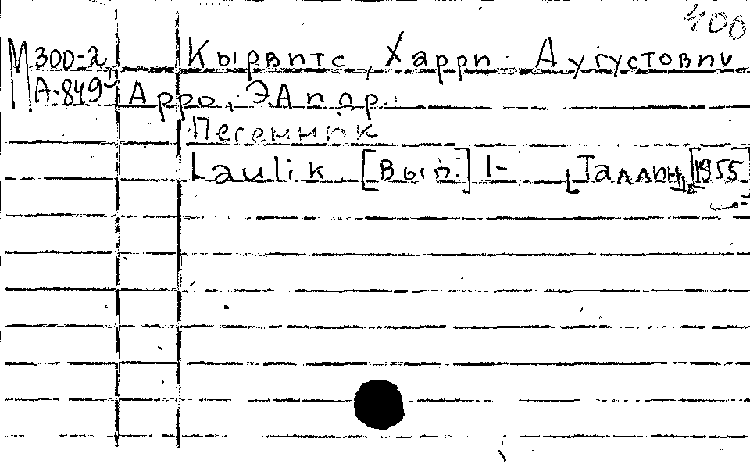 400
М 300-2 Кырвитс, Харри Аугустович
А-849 Арро, Э. А и др.
Песенник
Laulik. [Вып.] 1- [Таллин, 1955